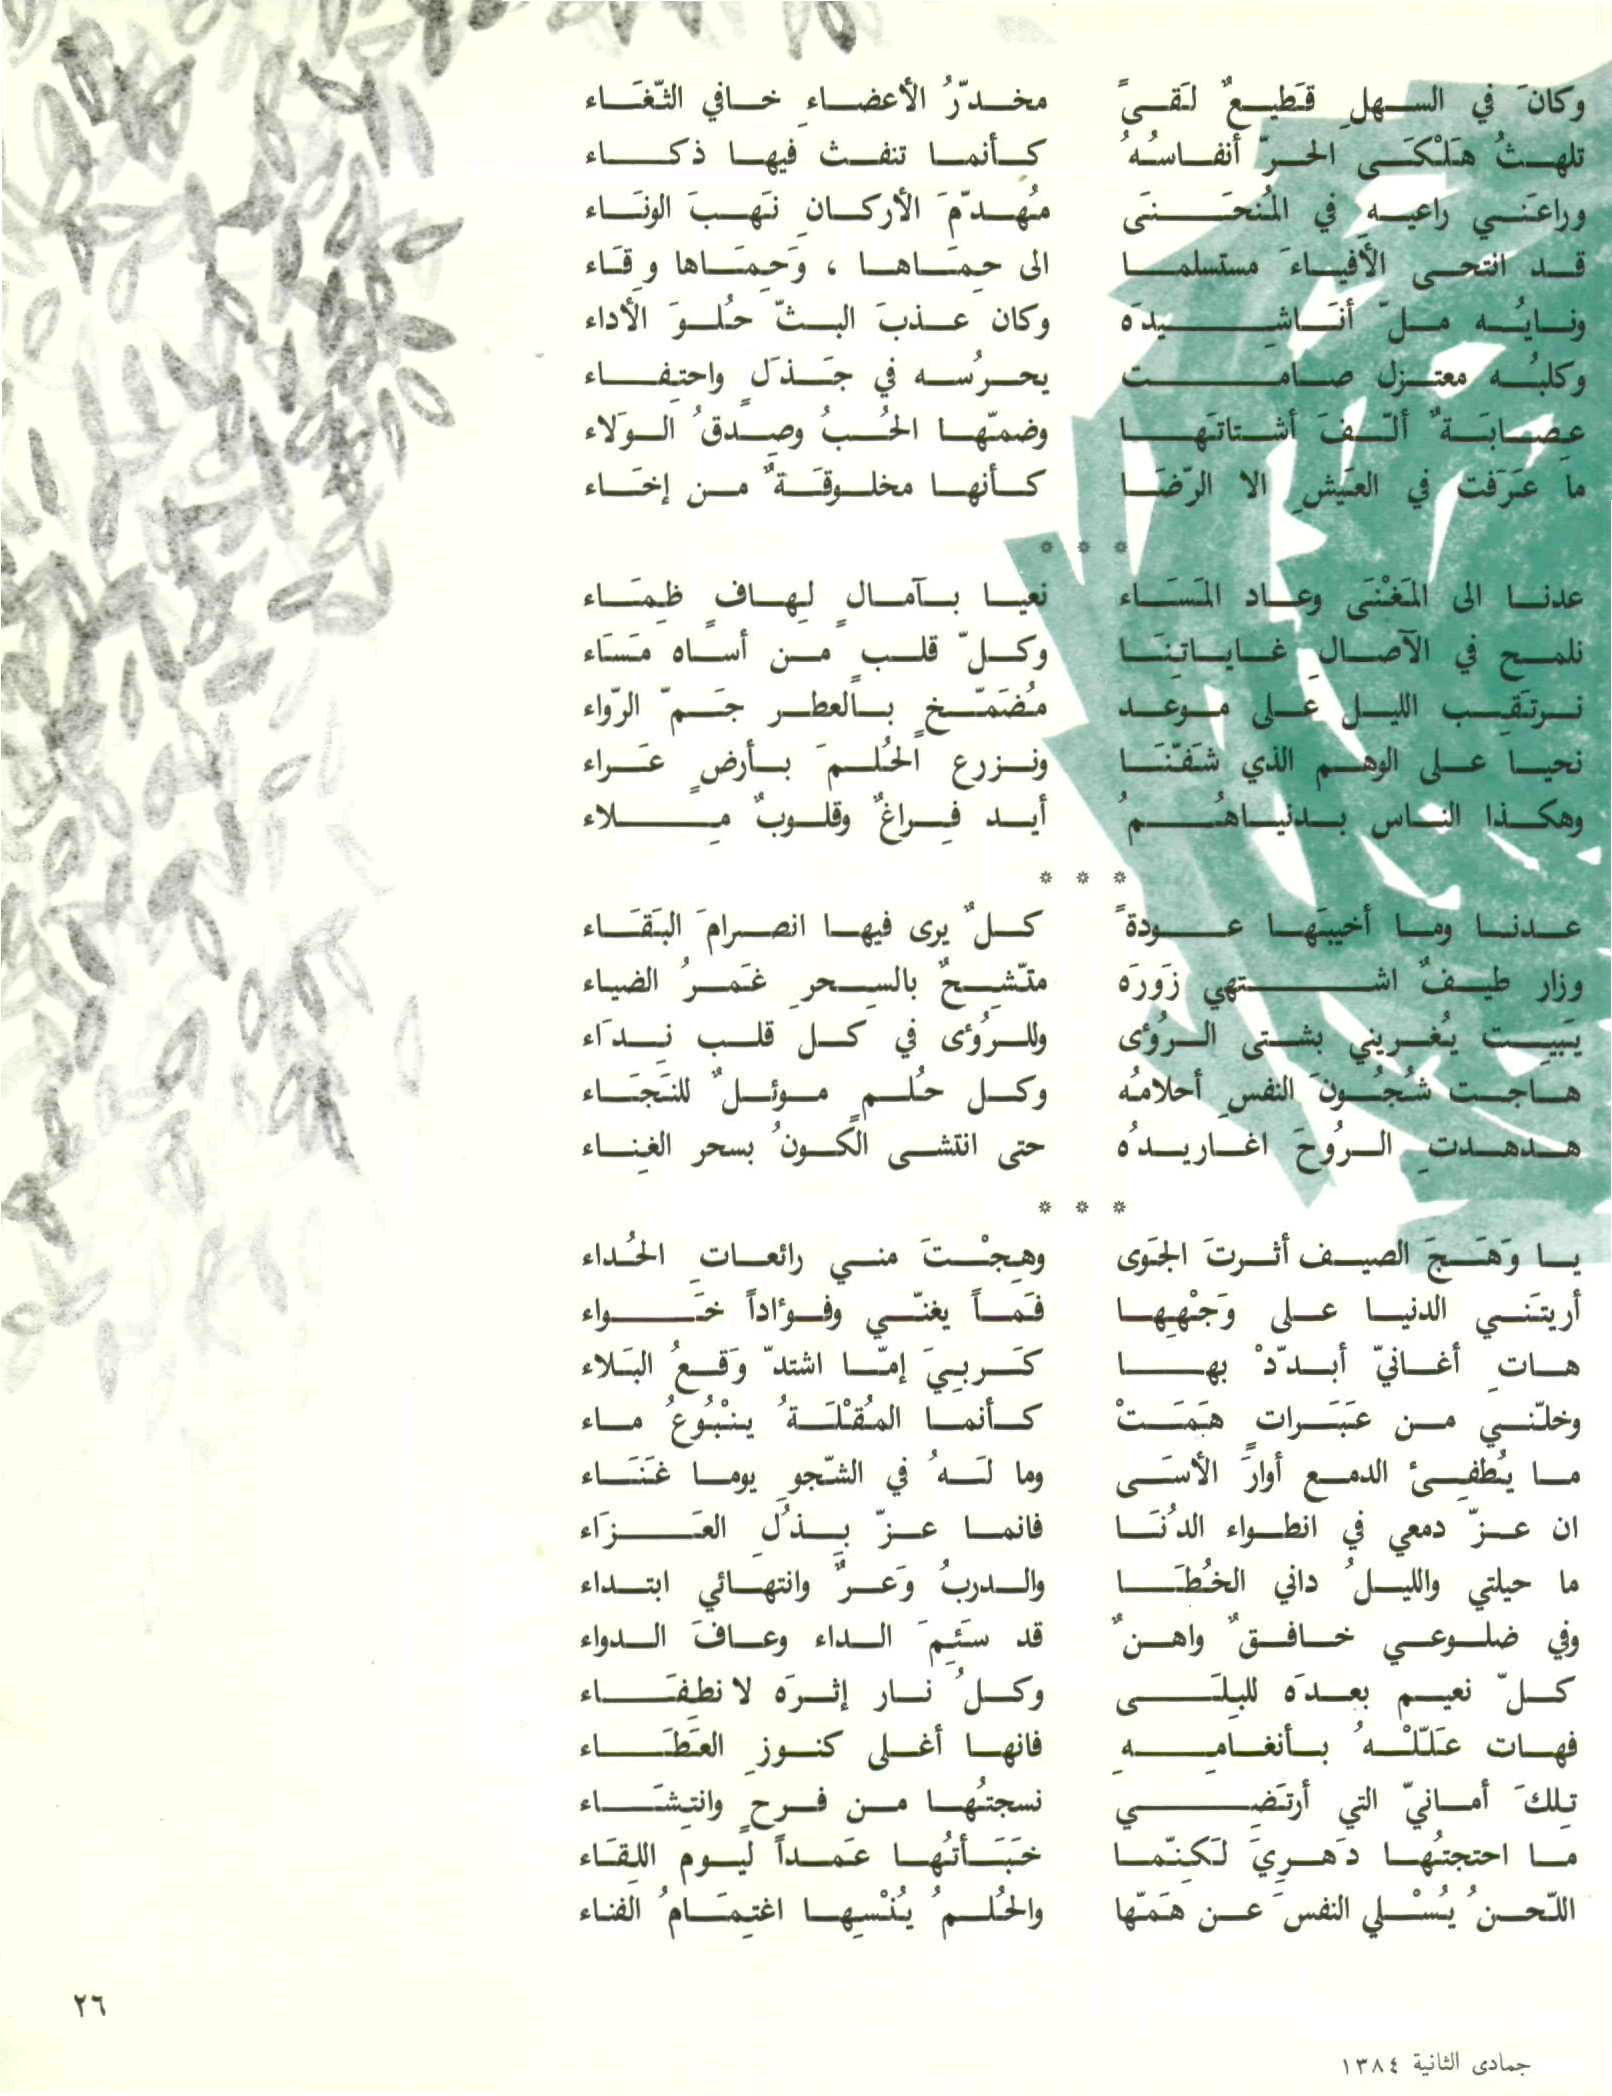 وكانَ في السهلِ قَطيعٌ لَقىً مخدّرُ الأعضاءِ خافي الثّغَاء
تلهثُ هَلْكَى الحرّ أنفاسُهُ كأنما تنفث فيها ذكاء
وراعَني راعيهِ في المُنحَنَى مُهدّمَ الأركانِ نَهبَ الونَاء
قد انتحى الأفياءَ مستسلما الى حِمَاها ، وَحِمَاها وِقَاء
ونايُه ملّ أنَاشِيدَه وكان عذبَ البثّ حُلوَ الأداء
وكلبُه معتزل صامت يحرسُه في جَذَلٍ واحتِفاء
عِصابَةٌ ألّفَ أشتاتَها وضمّها الحُبُ وصِدقُ الوَلاء
ما عَرَفت في العَيشِ الا الرّضَا كأنها مخلوقَةٌ من إخَاء
* * *
عدنا الى المَغْنَى وعاد المَسَاء نعيا بآمالٍ لِهافٍ ظِمَاء
نلمح في الآصال غاياتِنَا وكلّ قلبٍ من أساه مَسَاء
نرتَقِب الليل عَلى موعد مُضَمّخٍ بالعطر جَمّ الرّواء
نحيا على الوهم الذي شَفّنَا ونزرع الحُلمَ بأرضٍ عَراء
وهكذا الناس بدنياهُمُ أيد فِراغٌ وقلوبٌ مِلاء
* * *
عدنا وما أخيبَها عودةً كلٌ يرى فيها انصرامَ البَقَاء
وزار طيفٌ اشتهي زَورَه متّشِحٌ بالسِحرِ غَمرُ الضياء
يَبيِت يُغريني بشتى الرُؤى وللرُؤى في كل قلب نِدَاء
هاجت شُجُونَ النفسِ أحلامُه وكل حُلمٍ موئلٌ للنَجَاء
هدهدتِ الرُوحَ اغاريدُه حتى انتشى الكونُ بسحر الغِناء
* * *
يا وَهَجَ الصيف أثرتَ الجَوى وهِجْتَ مني رائعاتِ الحُداء
أريتَني الدنيا على وَجْهِها فَماً يغنّي وفؤاداً خَواء
هاتِ أغانيّ أبدّدْ بها كَربِيَ إمّا اشتدّ وَقعُ البَلاء
وخلّني من عَبَراتٍ هَمَتْ كأنما المُقْلَةُ يَنْبُوعُ ماء
ما يُطفِئ الدمع أوارَ الأسَى وما لَهُ في الشّجوِ يوما غَنَاء
ان عزّ دمعي في انطواء الدُنَا فانما عزّ بِذُلِ العَزَاء
ما حيلتي والليلُ داني الخُطَا والدربُ وَعرٌ وانتهائي ابتداء
وفي ضلوعي خافقٌ واهنٌ قد سَئِمَ الداء وعافَ الدواء
كلّ نعيم بعدَه للبِلَى وكلُ نار إثرَه لانطِفَاء
فهات عَلّلْهُ بأنغامِهِ فانها أغلى كنوزِ العَطَاء
تِلكَ أمانيّ التي أرتَضِي نسجتُها من فرحٍ وانتِشَاء
ما احتجتُها دَهرِيَ لَكِنّما خَبَأتُها عَمداً ليوم اللِقَاء
اللّحنُ يُسْلي النفسَ عن هَمّها والحُلمُ يُنْسِها اغتِمَامُ الفناء
٢٦
جمادى الثانية ١٣٨٤